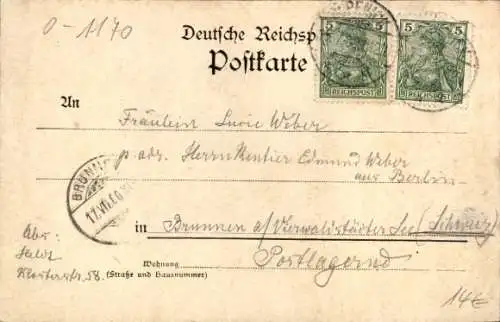 0-1170
Deutsche Reichsp
Postkarte
5 5
REICHSPOST
5 5
REICHSPOST
An
Fräulein Lucie Weber
p. adr. Herrn Rentier Edmund Weber
aus Berlin
BRUNN
17.VII.00
in Brunnen a/Vierwaldstädter See (Schweiz)
Postlagernd
Abs:
Klosterstr. 58.
Wohnung
(Straße und Hausnummer)
14€